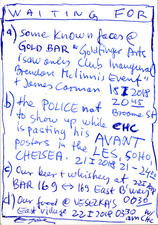 WAITING FOR
a) some known faces @
GOLD BAR "Goldfinger Arts
(saw anles Club Inaugural
Brendan McGinnis Event"
+ James Gorman 15 I 2018
2045
b) the POLICE not Broome St
to show up while CHC
is pasting his AVANT
posters in the LES, SOHO,
CHELSEA. 21 I 2018 21-24
c) Our beer + whiskey at 22 I 2018
BAR 169 ↔ 169 East B'way
d) Our food @ VESELKA'S 0030
East Village 22 I 2018 0330 w/
am CHC